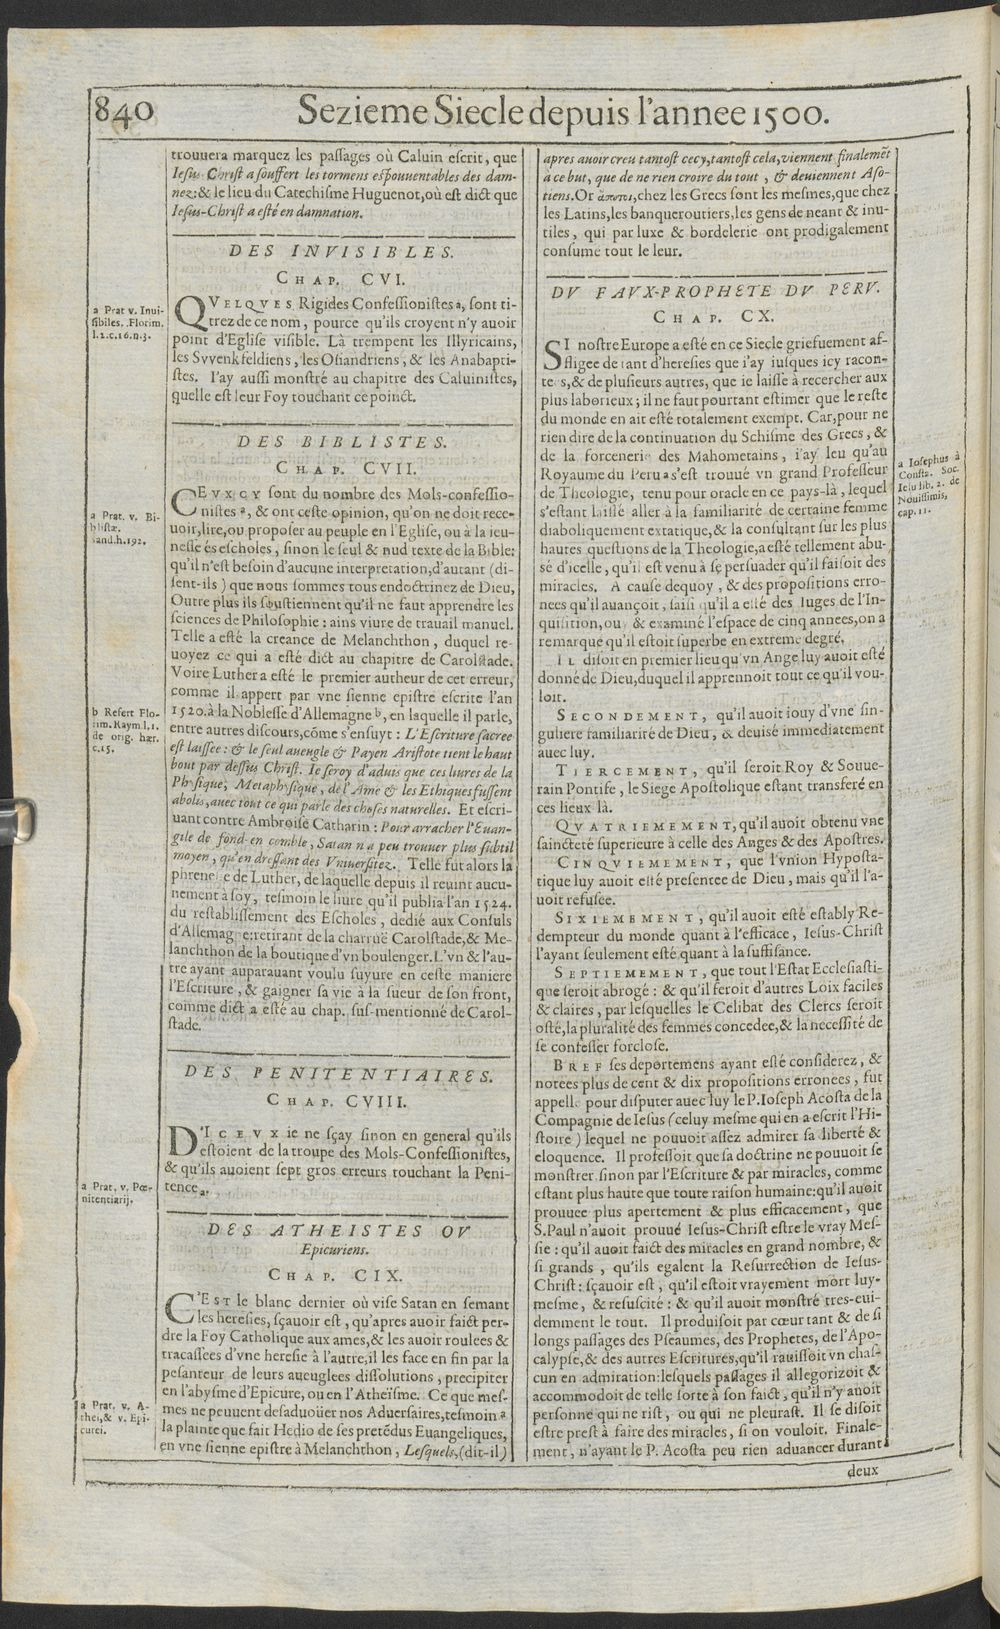 840
Sezieme Siecle depuis l'annee 1500.
trouuera marquez les passages où Caluin escrit, que
Iesus-Christ a souffert les tormens espouuentables des dam-
nez: & le lieu du Catechisme Huguenot, où est dict que
Iesus-Christ a esté en damnation.
DES INVISIBLES.
CHAP. CVI.
a Prat v. Inui-
sibiles. Florim.
l.2.c.16.n.3.
QVELQVES Rigides Confessionistes a, sont ti-
trez de ce nom, pource qu'ils croyent n'y auoir
point d'Eglise visible. Là trempent les Illyricains,
les Svvenkfeldiens, les Osiandriens, & les Anabapti-
stes. I'ay aussi monstré au chapitre des Caluinistes,
quelle est leur Foy touchant ce poinct.
DES BIBLISTES.
CHAP. CVII.
a Prat. v. Bi-
blistæ.
Sand.h.192.
CEVXCY sont du nombre des Mols-confessio-
nistes a, & ont ceste opinion, qu'on ne doit rece-
uoir, lire, ou proposer au peuple en l'Eglise, ou à la ieu-
nesse és escholes, sinon le seul & nud texte de la Bible:
qu'il n'est besoin d'aucune interpretation, d'autant (di-
sent-ils) que nous sommes tous endoctrinez de Dieu,
Outre plus ils soustiennent qu'il ne faut apprendre les
sciences de Philosophie: ains viure de trauail manuel.
Telle a esté la creance de Melanchthon, duquel re-
uoyez ce qui a esté dict au chapitre de Carolstade.
Voire Luther a esté le premier autheur de cet erreur,
comme il appert par vne sienne epistre escrite l'an
b Refert Flo-
rim. Raym.l.1.
de orig. hær.
c.15.
1520. à la Noblesse d'Allemagne b, en laquelle il parle,
entre autres discours, cōme s'ensuyt: L'Escriture sacree
est laissee: & le seul aueugle & Payen Aristote tient le haut
bout par dessus Christ. Ie seroy d'aduis que ces liures de la
Physique, Metaphysique, de l'Ame & les Ethiques fussent
abolis, auec tout ce qui parle des choses naturelles. Et escri-
uant contre Ambroise Catharin: Pour arracher l'Euan-
gile de fond en comble, Satan n'a peu trouuer plus subtil
moyen, qu'en dressant des Vniuersitez. Telle fut alors la
phrenesie de Luther, de laquelle depuis il reuint aucu-
nement à soy, tesmoin le liure qu'il publia l'an 1524.
du restablissement des Escholes, dedié aux Consuls
d'Allemagne: retirant de la charruë Carolstade, & Me-
lanchthon de la boutique d'vn boulenger. L'vn & l'au-
tre ayant auparauant voulu suyure en ceste maniere
l'Escriture, & gaigner sa vie à la sueur de son front,
comme dict a esté au chap. sus-mentionné de Carol-
stade.
DES PENITENTIAIRES.
CHAP. CVIII.
D'ICEVX ie ne sçay sinon en general qu'ils
estoient de la troupe des Mols-Confessionistes,
& qu'ils auoient sept gros erreurs touchant la Peni-
tence a.
a Prat. v. Pœ-
nitentiarij.
DES ATHEISTES OV
Epicuriens.
CHAP. CIX.
C'EST le blanc dernier où vise Satan en semant
les heresies, sçauoir est, qu'apres auoir faict per-
dre la Foy Catholique aux ames, & les auoir roulees &
tracassees d'vne heresie à l'autre, il les face en fin par la
pesanteur de leurs aueuglees dissolutions, precipiter
en l'abysme d'Epicure, ou en l'Atheïsme. Ce que mes-
a Prat. v. A-
thei, & v. Epi-
curei.
mes ne peuuent desaduoüer nos Aduersaires, tesmoin a
la plainte que fait Hedio de ses pretēdus Euangeliques,
en vne sienne epistre à Melanchthon, Lesquels, (dit-il)
apres auoir creu tantost cecy, tantost cela, viennent finalemēt
à ce but, que de ne rien croire du tout, & deuiennent Aso-
tiens. Or ἄσωτοι, chez les Grecs sont les mesmes, que chez
les Latins, les banqueroutiers, les gens de neant & inu-
tiles, qui par luxe & bordelerie ont prodigalement
consumé tout le leur.
DV FAVX-PROPHETE DV PERV.
CHAP. CX.
SI nostre Europe a esté en ce Siecle griefuement af-
fligee de tant d'heresies que i'ay iusques icy racon-
tees, & de plusieurs autres, que ie laisse à recercher aux
plus laborieux; il ne faut pourtant estimer que le reste
du monde en ait esté totalement exempt. Car, pour ne
rien dire de la continuation du Schisme des Grecs, &
de la forcenerie des Mahometains, i'ay leu qu'au
Royaume du Peru a s'est trouué vn grand Professeur
de Theologie, tenu pour oracle en ce pays-là, lequel
s'estant laissé aller à la familiarité de certaine femme
a Iosephus à
Consta. Soc.
Iesu lib. 2. de
Nouissimis,
cap. 11.
diaboliquement extatique, & la consultant sur les plus
hautes questions de la Theologie, a esté tellement abu-
sé d'icelle, qu'il est venu à se persuader qu'il faisoit des
miracles. A cause dequoy, & des propositions erro-
nees qu'il auançoit, saisi qu'il a esté des Iuges de l'In-
quisition, ouy & examiné l'espace de cinq annees, on a
remarqué qu'il estoit superbe en extreme degré.
IL disoit en premier lieu qu'vn Ange luy auoit esté
donné de Dieu, duquel il apprennoit tout ce qu'il vou-
loit.
SECONDEMENT, qu'il auoit iouy d'vne sin-
guliere familiarité de Dieu, & deuisé immediatement
auec luy.
TIERCEMENT, qu'il seroit Roy & Souue-
rain Pontife, le Siege Apostolique estant transferé en
ces lieux là.
QVATRIEMEMENT, qu'il auoit obtenu vne
saincteté superieure à celle des Anges & des Apostres.
CINQVIEMEMENT, que l'vnion Hyposta-
tique luy auoit esté presentee de Dieu, mais qu'il l'a-
uoit refusee.
SIXIEMEMENT, qu'il auoit esté estably Re-
dempteur du monde quant à l'efficace, Iesus-Christ
l'ayant seulement esté quant à la suffisance.
SEPTIEMEMENT, que tout l'Estat Ecclesiasti-
que seroit abrogé: & qu'il feroit d'autres Loix faciles
& claires, par lesquelles le Celibat des Clercs seroit
osté, la pluralité des femmes concedee, & la necessité de
se confesser forclose.
BREF ses deportemens ayant esté considerez, &
notées plus de cent & dix propositions erronees, fut
appellé pour disputer auec luy le P. Ioseph Acosta de la
Compagnie de Iesus (celuy mesme qui en a escrit l'Hi-
stoire) lequel ne pouuoit assez admirer sa liberté &
eloquence. Il professoit que sa doctrine ne pouuoit se
monstrer sinon par l'Escriture & par miracles, comme
estant plus haute que toute raison humaine: qu'il auoit
prouuee plus apertement & plus efficacement, que
S. Paul n'auoit prouué Iesus-Christ estre le vray Mes-
sie: qu'il auoit faict des miracles en grand nombre, &
si grands, qu'ils egalent la Resurrection de Iesus-
Christ: sçauoir est, qu'il estoit vrayement mort luy-
mesme, & resuscité: & qu'il auoit monstré tres-eui-
demment le tout. Il produisoit par cœur tant & de si
longs passages des Pseaumes, des Prophetes, de l'Apo-
calypse, & des autres Escritures, qu'il rauissoit vn chas-
cun en admiration: lesquels passages il allegorizoit &
accommodoit de telle sorte à son faict, qu'il n'y auoit
personne qui ne rist, ou qui ne pleurast. Il se disoit
estre prest à faire des miracles, si on vouloit. Finale-
ment, n'ayant le P. Acosta peu rien aduancer durant
deux